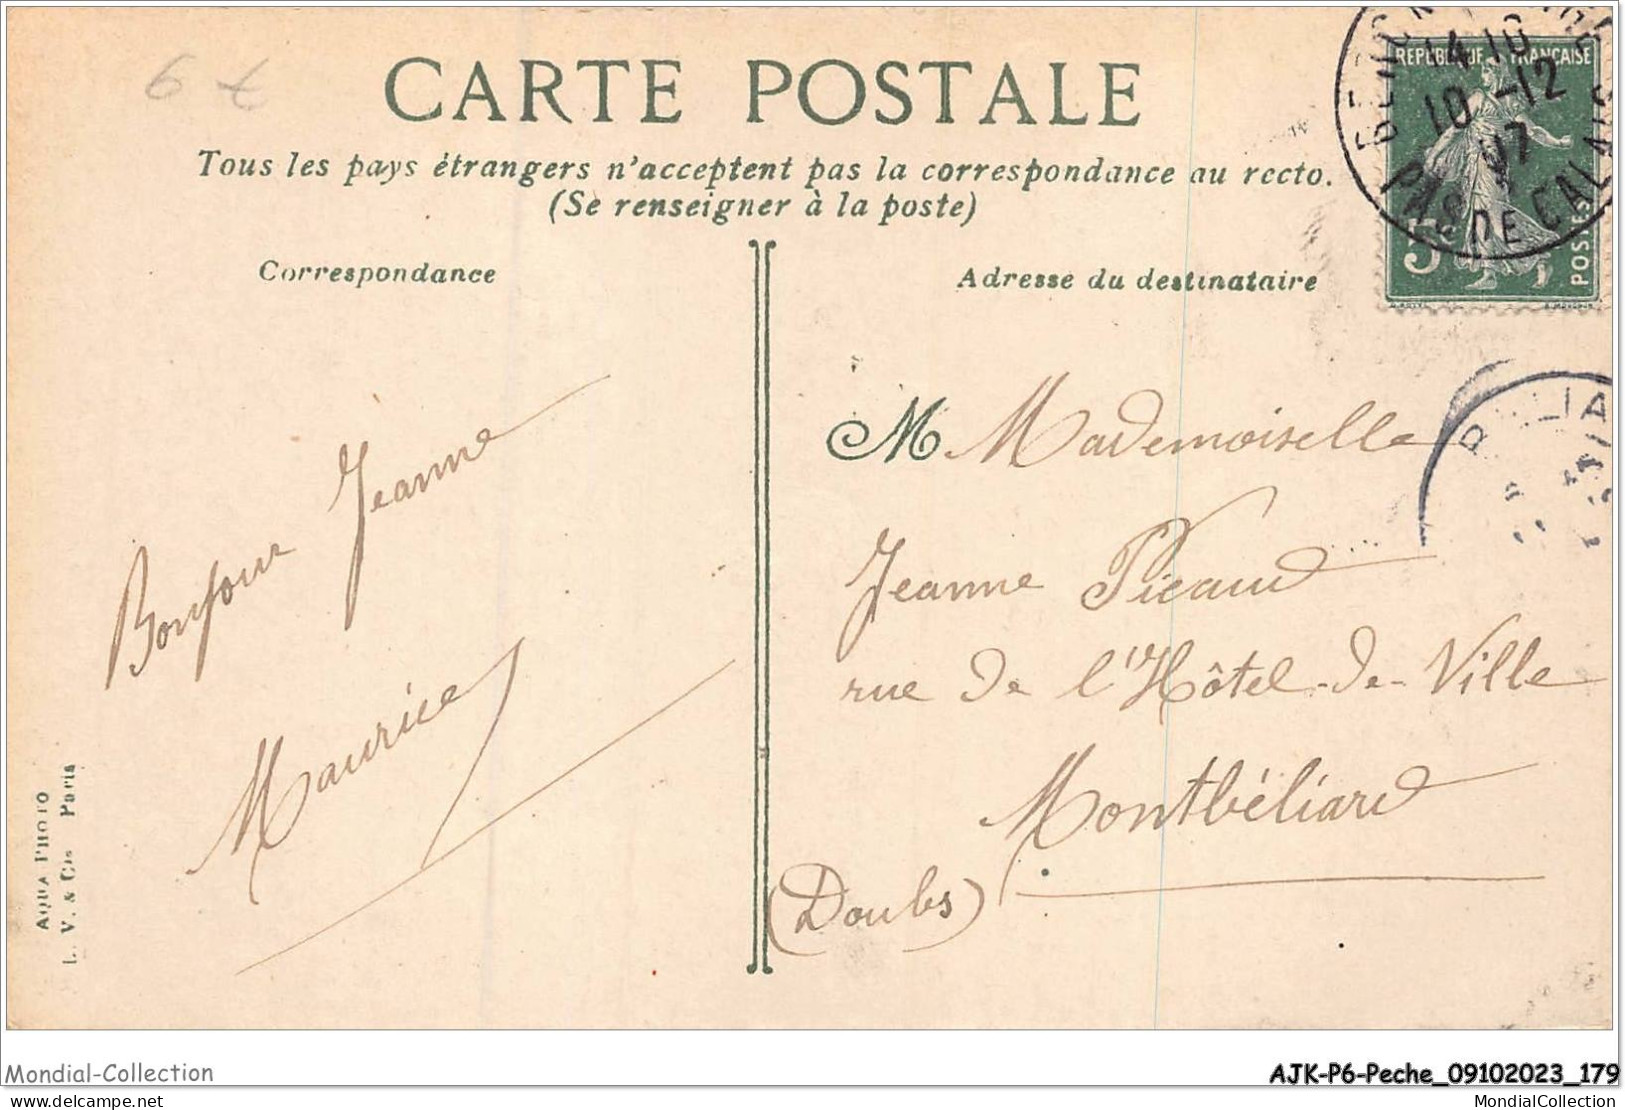 6 €
CARTE POSTALE
Tous les pays étrangers n'acceptent pas la correspondance au recto.
(Se renseigner à la poste)
Correspondance
Adresse du destinataire
REPUBLIQUE FRANÇAISE
POSTES
14 10
10 -12
07
PAS DE CALAIS
Bonjour Jeanne
Maurice
M Mademoiselle
Jeanne Picaud
rue de l'Hôtel-de-Ville
Montbéliard
(Doubs)
AQUA PHOTO
L. V. & Cie Paris
Mondial-Collection
AJK-P6-Peche_09102023_179
MondialCollection
MondialCollection